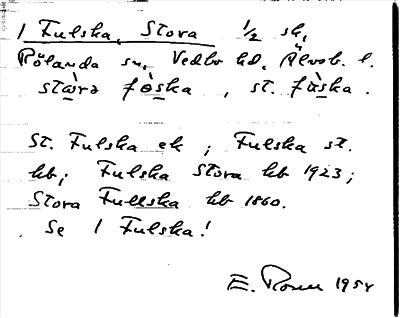 1 Fulska, Stora 1/2 sk,
Rölanda sn, Vedbo hd, Älvsb. l.
stɷ̀rɑ fɷ̀ska, st. fɷ̀ska.
St. Fulska ek; Fulska st.
kb; Fulska Stora kb 1923;
Stora Fullska kb 1860.
Se 1 Fulska!
E. Rosell 195